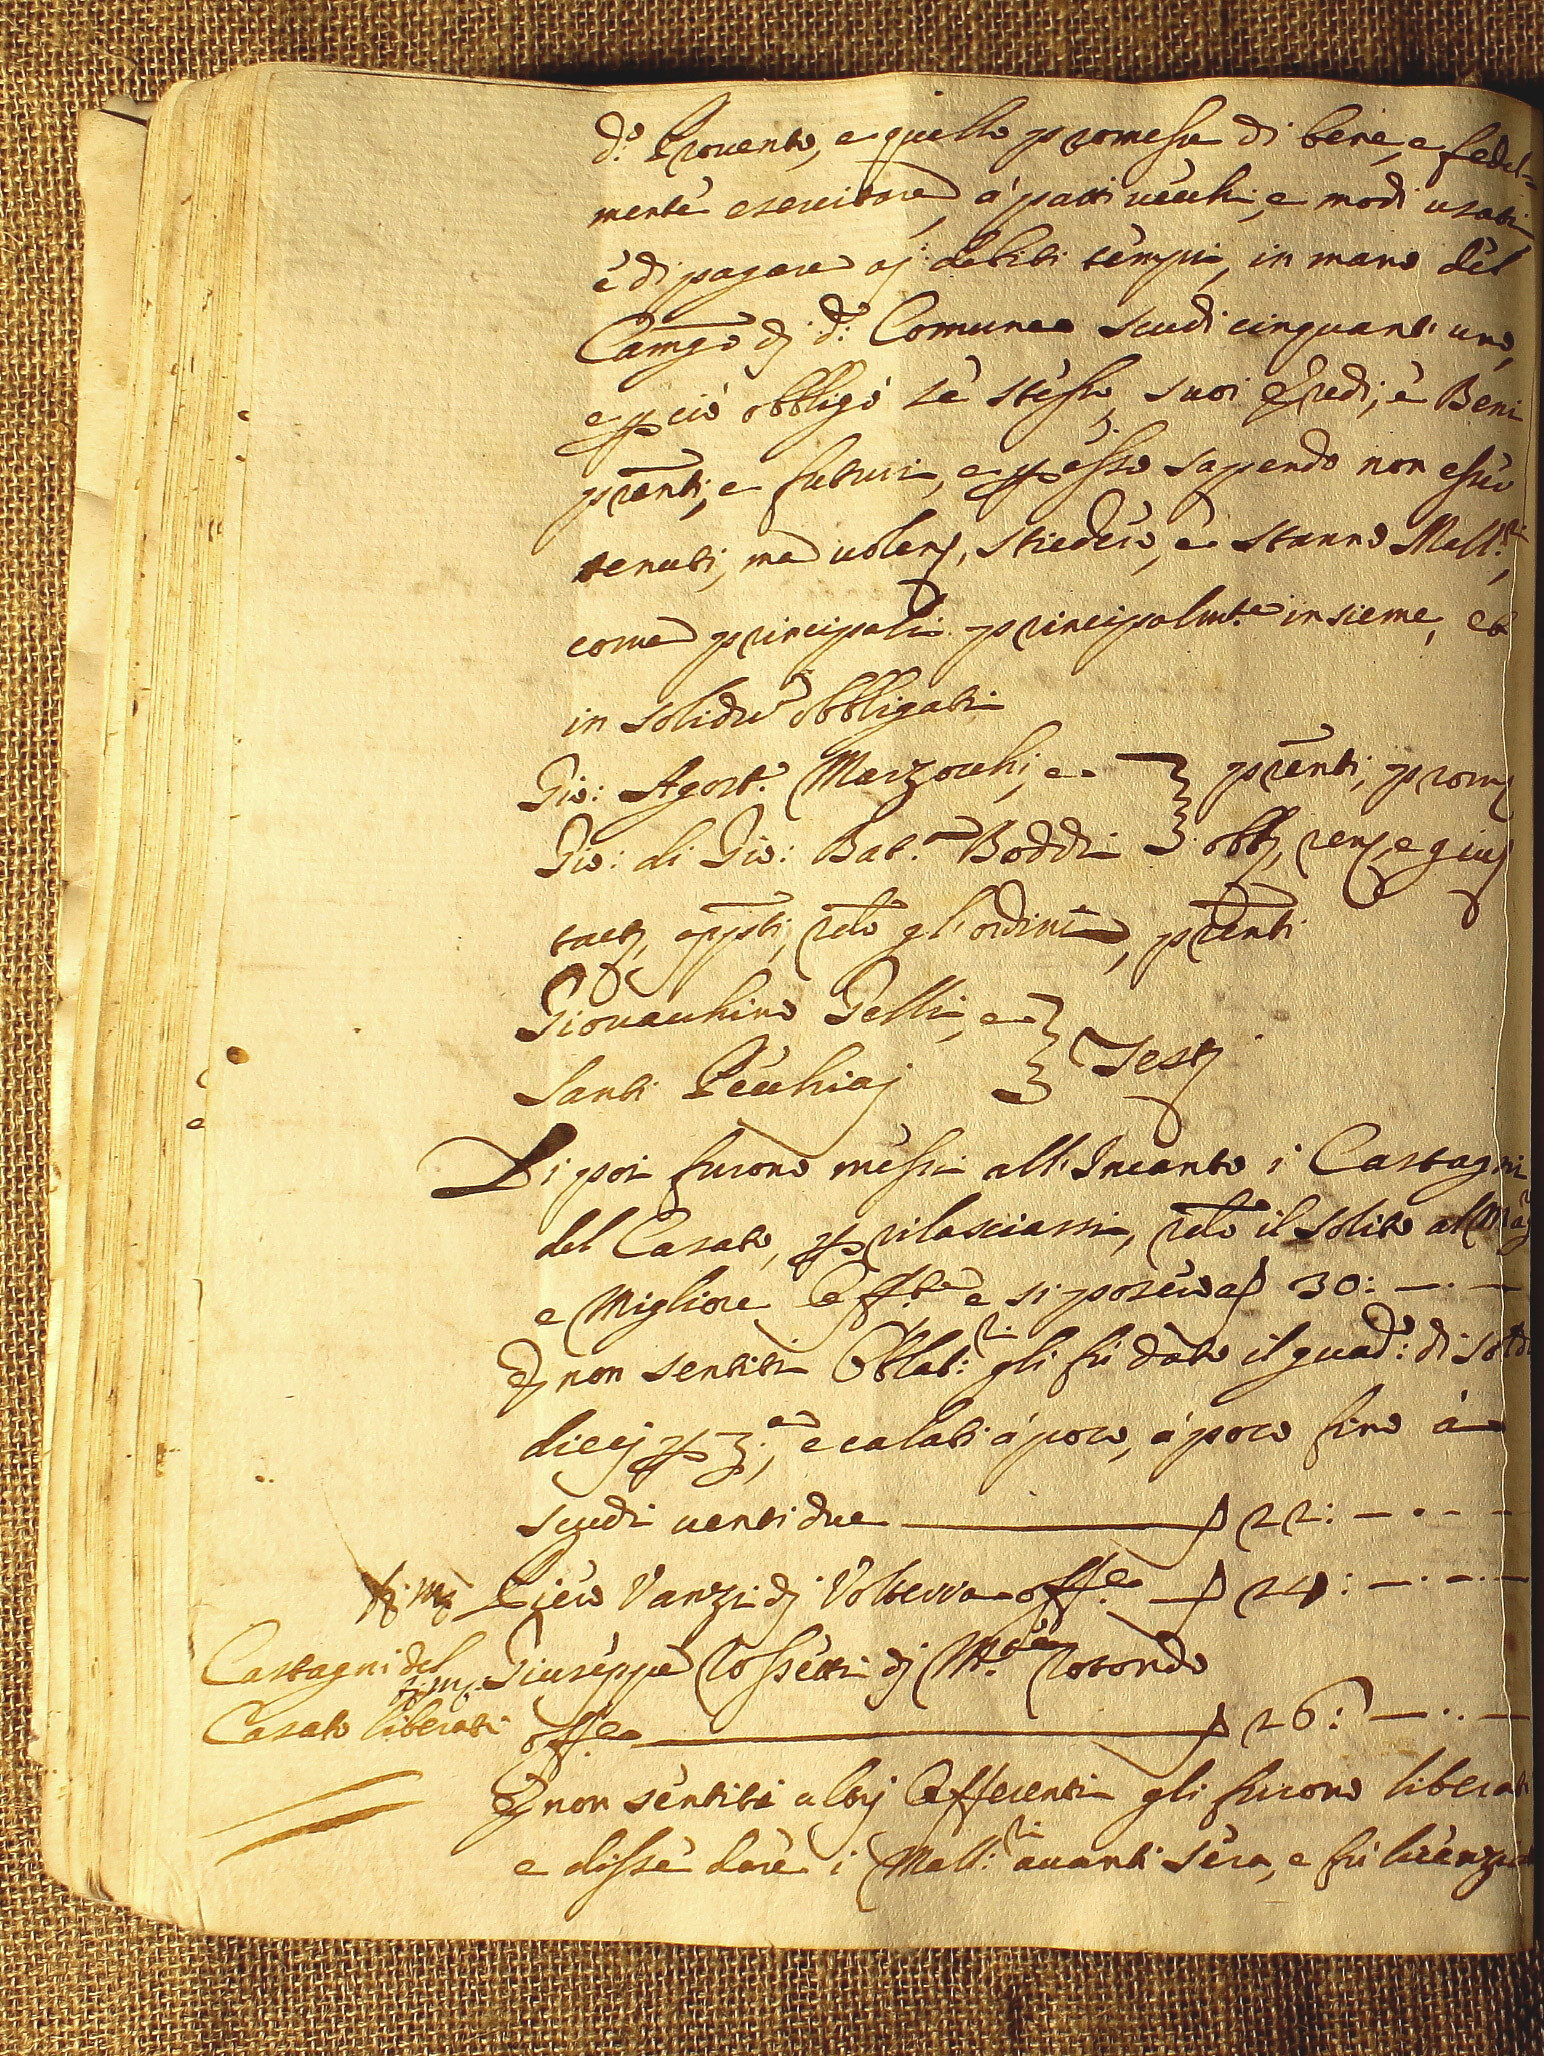 d.º Provento, e quello promesse di bene, e fedel=
mente esercitare, à patti vecchi, e modi usati,
è di pagare aj debiti tempi, in mano del
Camg.º dj d.º Comune scudi cinquant'uno,
e p ciò obbligò sè stesso, suoi Eredi, è Beni
pr̃enti, e futuri, e p esso sapendo non esser
tenuti, ma volenj, stiedero, e stanno Mall.ri,
come principali principalm.te insieme, et
in solidũ obbligati
Gio: Agost.º Marzocchi, e
pr̃enti, prom
Gio: di Gio: Bat.a Boddi
obb, renz, e giur
tact, app̃ti, rũto gl'ordini, pr̃enti
Giovacchino Gelli, e
Santi Pècchiaj
Testj
Di poi furono messi all'Incanto i Castagni
del Casato, p rilasciarsi, rũto il solito al Mag
e Migliore Off.te e si posero a ƒ 30: — · —
Ej non sentiti Oblat:ri gli fù dato il guad.º: di soldi
diecj p ʒ.a, e calati à poco, à poco fino à
scudi venti due ——— ƒ 22: — · — —
Pièro Vanzi dj Volterra off.e — ƒ 24: — · — · —
Giuseppe Rossetti dj M.te Rotondo
Castagni del
Casato liberati
off.e ——— ƒ 26: — · · —
Ej non sentiti altrj Offerenti gli furono liberati
e disse dare i Mall:ri avanti sera, e fù licenzia